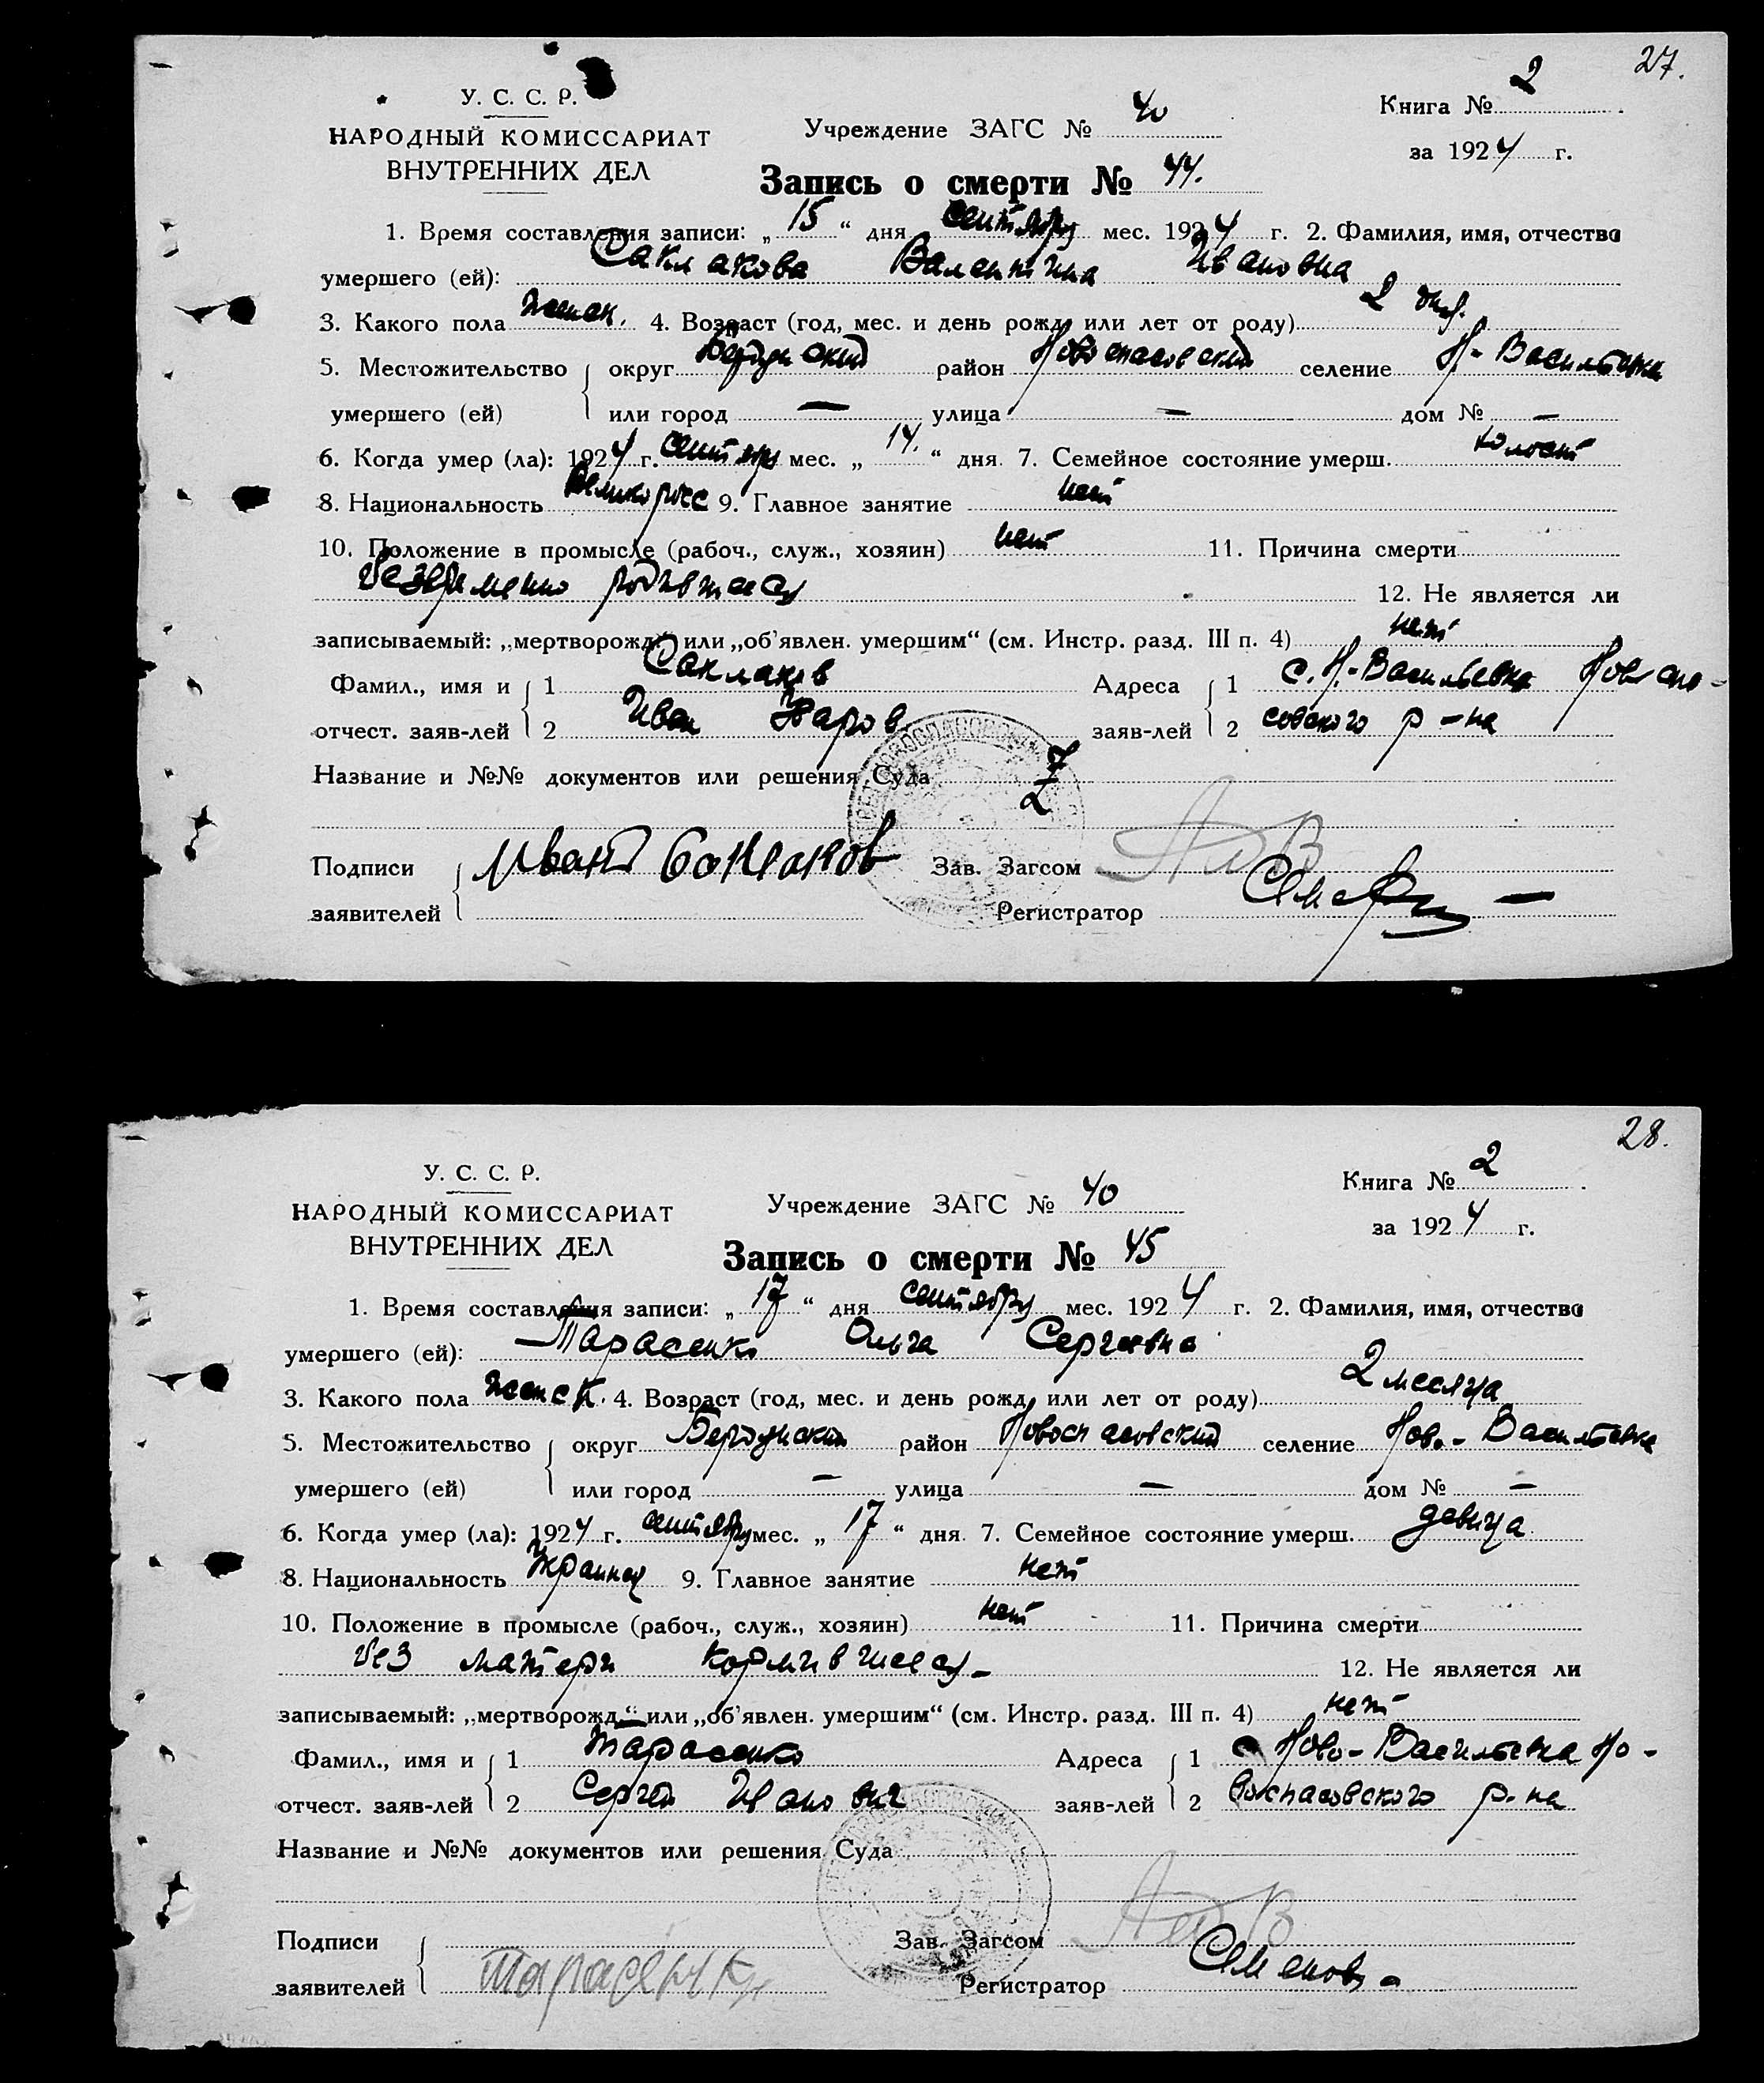 27.
У. С. С. Р.
НАРОДНЫЙ КОМИССАРИАТ
ВНУТРЕННИХ ДЕЛ
Учреждение ЗАГС № 40
Книга № 2
за 1924 г.
Запись о смерти № 44.
1. Время составления записи: „15“ дня сентября мес. 1924 г. 2. Фамилия, имя, отчество
умершего (ей): Саклакова Валентина Ивановна
3. Какого пола женск. 4. Возраст (год, мес. и день рожд. или лет от роду) 2 дня.
5. Местожительство округ Бердянский район Новоспасовский селение Н-Васильевка
умершего (ей) или город — улица — дом № —
6. Когда умер (ла): 1924 г. сентября мес. „14.“ дня. 7. Семейное состояние умерш. холост
8. Национальность Великоросс 9. Главное занятие нет
10. Положение в промысле (рабоч., служ., хозяин) нет 11. Причина смерти
родившаяся 12. Не является ли
записываемый: „мертворожд.“ или „об'явлен. умершим“ (см. Инстр. разд. III п. 4) нет
Фамил., имя и 1 Саклаков Адреса 1 с. Н.-Васильевка Новоспа-
отчест. заяв-лей 2 Иван заяв-лей 2 совского р-на
Название и №№ документов или решения Суда
Подписи Иван Саклаков Зав. Загсом
заявителей Регистратор
28.
У. С. С. Р.
НАРОДНЫЙ КОМИССАРИАТ
ВНУТРЕННИХ ДЕЛ
Учреждение ЗАГС № 40
Книга № 2
за 1924 г.
Запись о смерти № 45
1. Время составления записи: „17“ дня сентября мес. 1924 г. 2. Фамилия, имя, отчество
умершего (ей): Тарасенко Ольга Сергеевна
3. Какого пола женск. 4. Возраст (год, мес. и день рожд. или лет от роду) 2 месяца
5. Местожительство округ Бердянский район Новоспасовский селение Ново-Васильевка
умершего (ей) или город — улица — дом № —
6. Когда умер (ла): 1924 г. сентября мес. „17“ дня. 7. Семейное состояние умерш. девица
8. Национальность 9. Главное занятие нет
10. Положение в промысле (рабоч., служ., хозяин) нет 11. Причина смерти
без матери кормившаяся - 12. Не является ли
записываемый: „мертворожд.“ или „об'явлен. умершим“ (см. Инстр. разд. III п. 4) нет
Фамил., имя и 1 Тарасенко Адреса 1 с Ново-Васильевка Но-
отчест. заяв-лей 2 Сергей Иванович заяв-лей 2 воспасовского р-на
Название и №№ документов или решения Суда
Подписи Зав. Загсом
заявителей Тарасенко Регистратор Семенова